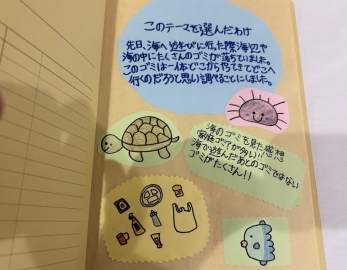 このテーマを選んだわけ
先日、海へ遊びに行った際海辺や
海の中にたくさんのゴミが落ちていました。
このゴミは一体どこからやってきてどこへ
行くのだろうと思い調べることにしました。
海のゴミを見た感想
家庭ゴミが多い!!
海で遊んだあとのゴミではない
ゴミがたくさん!!